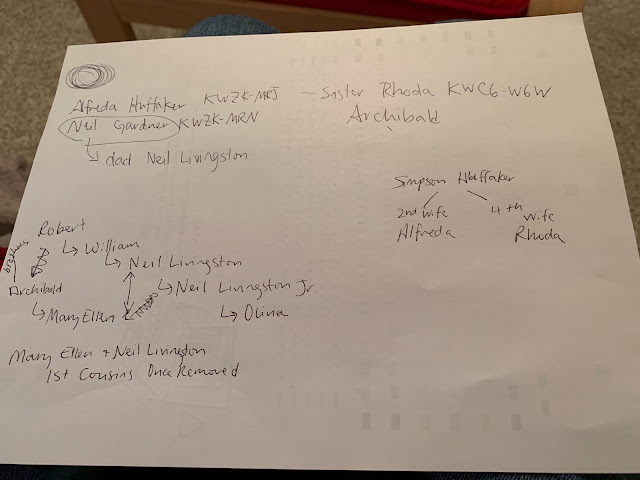 Alfreda Huffaker KWZK-MRJ – Sister Rhoda KWC6-W6W
Neil Gardner KWZK-MRN Archibald
↳ dad Neil Livingston
Simpson Huffaker
2nd wife 4th wife
Alfreda Rhoda
Robert
brothers
↳ William
↳ Neil Livingston
Archibald
↳ Neil Livingston Jr.
↳ Mary Ellen
↳ Olivia
Mary Ellen + Neil Livingston
1st Cousins Once Removed